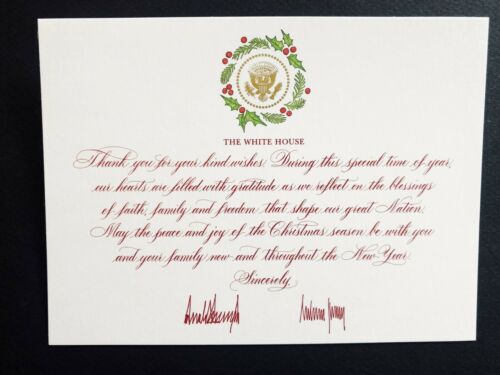 THE WHITE HOUSE
Thank you for your kind wishes. During this special time of year,
our hearts are filled with gratitude as we reflect on the blessings
of faith, family and freedom that shape our great Nation.
May the peace and joy of the Christmas season be with you
and your family now and throughout the New Year.
Sincerely,